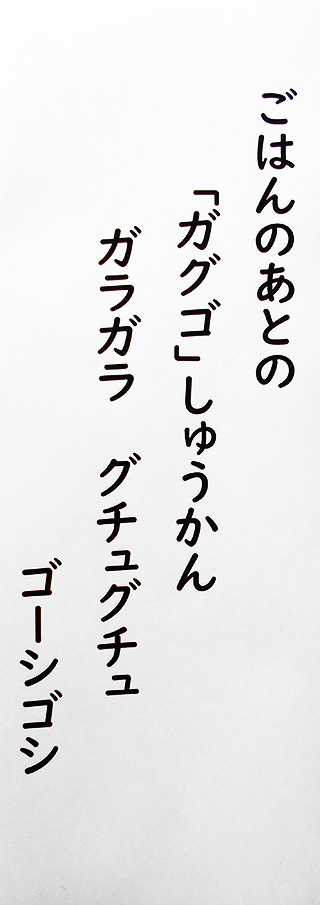 ごはんのあとの
「ガグゴ」しゅうかん
ガラガラ　グチュグチュ
ゴーシゴシ